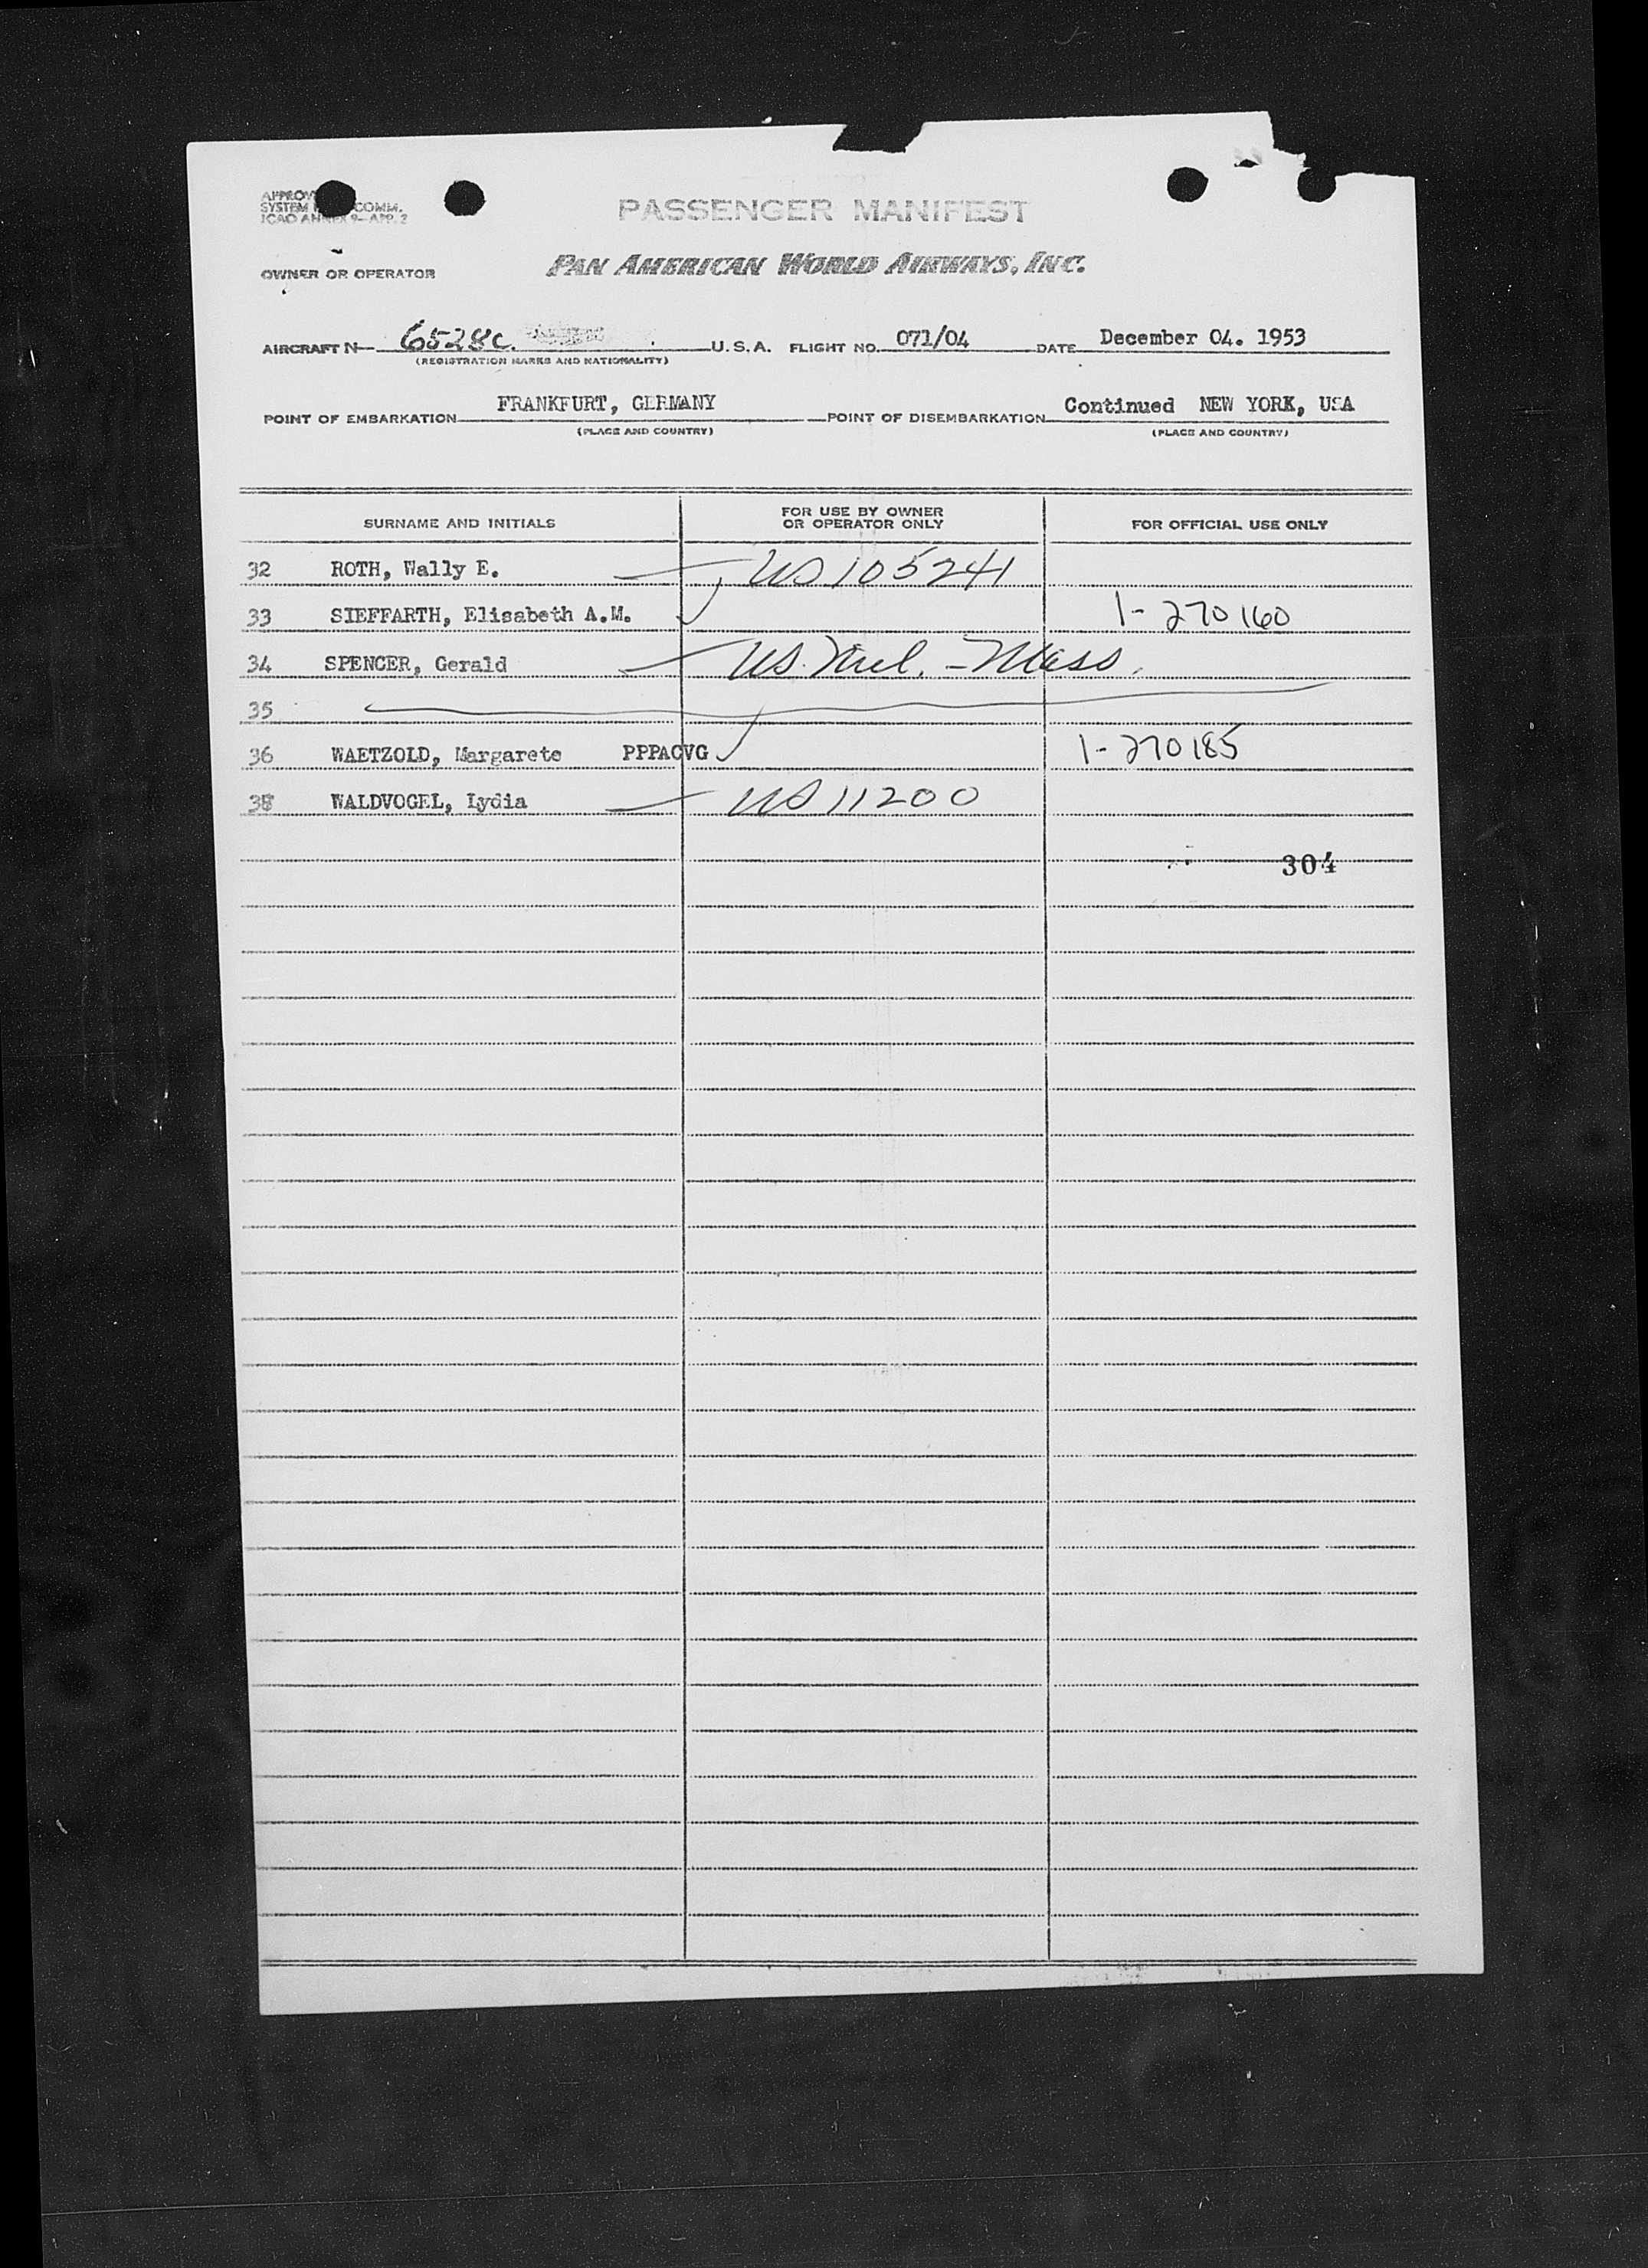 PASSENGER MANIFEST
OWNER OR OPERATOR PAN AMERICAN WORLD AIRWAYS, INC.
AIRCRAFT N 6528C. U.S.A. FLIGHT NO. 071/04 DATE December 04. 1953
(REGISTRATION MARKS AND NATIONALITY)
POINT OF EMBARKATION FRANKFURT, GERMANY POINT OF DISEMBARKATION Continued NEW YORK, USA
(PLACE AND COUNTRY) (PLACE AND COUNTRY)
SURNAME AND INITIALS FOR USE BY OWNER OR OPERATOR ONLY FOR OFFICIAL USE ONLY
32 ROTH, Wally E. US 105241
33 SIEFFARTH, Elisabeth A.M. 1-270160
34 SPENCER, Gerald US. Mil. - Mass.
35
36 WAETZOLD, Margarete PPPACVG 1-270185
WALDVOGEL, Lydia US 11200
304